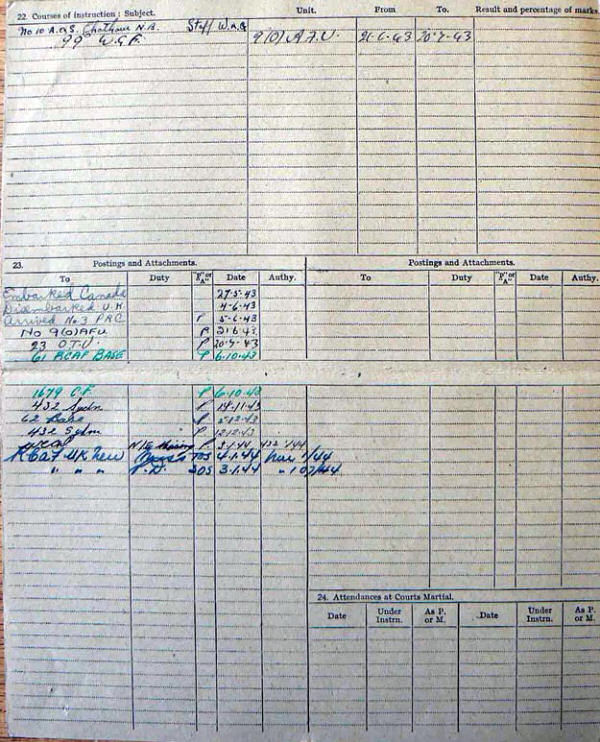 22. Courses of instruction: Subject. Unit. From To. Result and percentage of marks.
No 10 A.O.S. Chatham N.B. Staff W.A.G
9(O) A.F.U. 21-6-43 20-7-43
23. Postings and Attachments. Postings and Attachments.
To Duty "P" or "A" Date Authy. To Duty "P" or "A" Date Authy.
Embarked Canada 27-5-43
Disembarked U.K. 4-6-43
Arrived No 3 PRC P 5-6-43
No 9(O)AFU P 21.6.43
23 O.T.U P 20-7-43
61 RCAF BASE P 6-10-43
1679 C.F. P 6-10-43
432 Sqdn P 14-11-43
62 Base P
432 Sqdn P 12-12-43
N/E Missing P 3-1-44 432 1/44
RCAF UK New TOS 4.1.44 1/44
" " " SOS 3.1.44
24. Attendances at Courts Martial.
Date Under Instrn. As P. or M. Date Under Instrn. As P. or M.